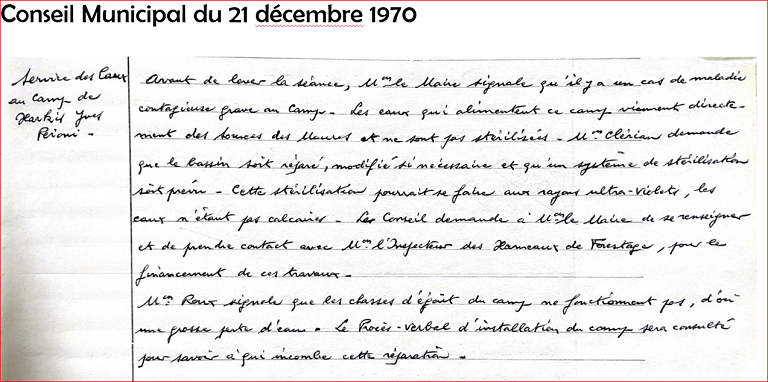 Conseil Municipal du 21 décembre 1970
Service des Eaux
au Camp de
Harkis Yves
Périni -
Avant de lever la séance, Mr le Maire signale qu'il y a un cas de maladie
contagieuse grave au Camp - Les eaux qui alimentent ce camp viennent directe-
ment des sources des Maures et ne sont pas stérilisées - Mr Clérian demande
que le bassin soit réparé, modifié si nécessaire et qu'un système de stérilisation
soit prévu - Cette stérilisation pourrait se faire aux rayons ultra-violets, les
eaux n'étant pas calcaires - Le Conseil demande à Mr le Maire de se renseigner
et de prendre contact avec Mr l'Inspecteur des Hameaux de Forestage, pour le
financement de ces travaux -
Mr Roux signale que les chasses d'égout du camp ne fonctionnent pas, d'où
une grosse perte d'eau - Le Procès-verbal d'installation du camp sera consulté
pour savoir à qui incombe cette réparation -